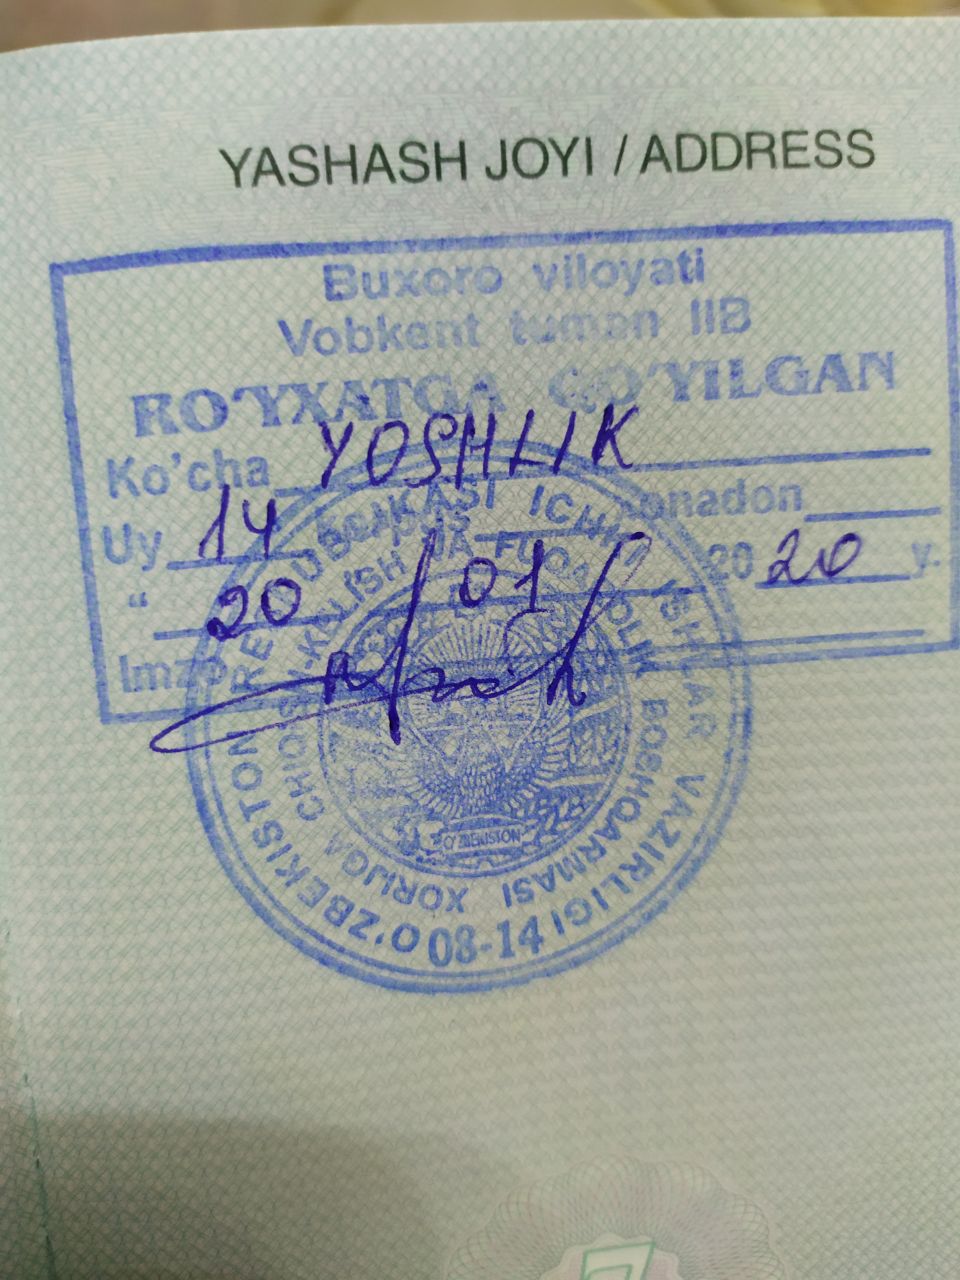 YASHASH JOYI / ADDRESS
Buxoro viloyati
Vobkent tuman IIB
RO'YXATGA QO'YILGAN
Ko'cha YOSHLIK
Uy 14 xonadon
“ 20 01 20 20 y.
Imzo
O'ZBEKISTON RESPUBLIKASI ICHKI ISHLAR VAZIRLIGI
XORIJGA CHIQISH-KELISH VA FUQAROLIK BOSHQARMASI
O'ZBEKISTON
08-14
7